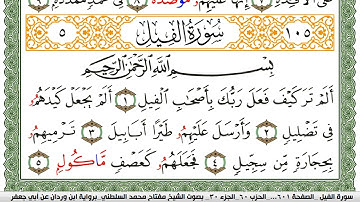 إِنَّهَا عَلَيْهِمُۥ مُوصَدَةٌ ٨ فِى عَمَدٍ مُّمَدَّدَةِۭ ٩
٥ سُورَةُ الْفِيلِ ١٠٥
بِسْمِ اللَّهِ الرَّحْمَٰنِ الرَّحِيمِ
أَلَمْ تَرَ كَيْفَ فَعَلَ رَبُّكَ بِأَصْحَٰبِ الْفِيلِ ١ أَلَمْ يَجْعَلْ كَيْدَهُمُۥ
فِى تَضْلِيلٍ ٢ وَأَرْسَلَ عَلَيْهِمُۥ طَيْرًا أَبَابِيلَ ٣ تَرْمِيهِمُۥ
بِحِجَارَةٍ مِّن سِجِّيلٍ ٤ فَجَعَلَهُمُۥ كَعَصْفٍ مَّاكُولِۭ ٥
سورة الفيل _ الصفحة ٦٠١_ الحزب ٦٠_ الجزء ٣٠_ بصوت الشيخ مفتاح محمد السلطني_ برواية ابن وردان عن أبي جعفر